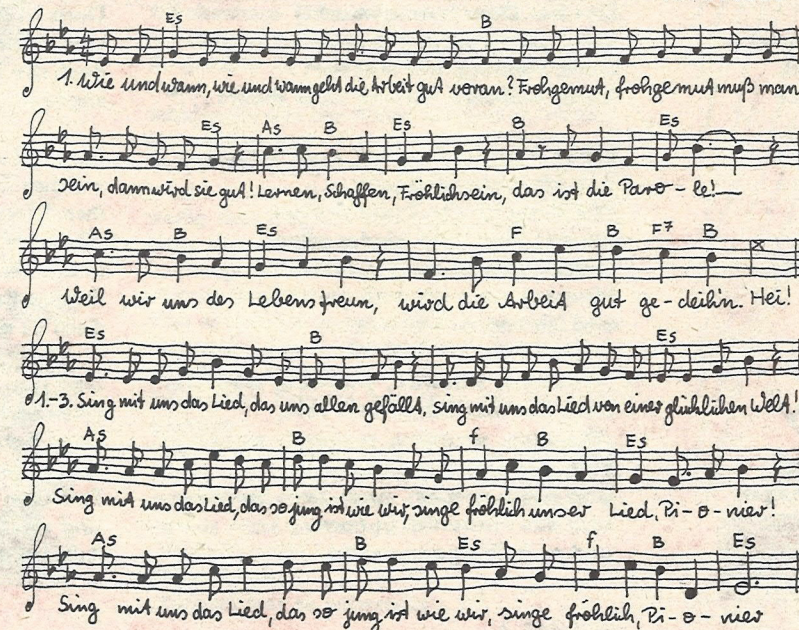 Es B
1. Wie und wann, wie und wann geht die Arbeit gut voran? Frohgemut, frohgemut muß man
Es As B Es B Es
sein, dann wird sie gut! Lernen, Schaffen, Fröhlichsein, das ist die Paro-le!
As B Es F B F7 B
Weil wir uns des Lebens freun, wird die Arbeit gut ge-deihn. Hei!
Es B Es
1.-3. Sing mit uns das Lied, das uns allen gefällt, sing mit uns das Lied von einer glücklichen Welt!
As B f B Es
Sing mit uns das Lied, das so jung ist wie wir, singe fröhlich unser Lied, Pi-o-nier!
As B Es f B Es
Sing mit uns das Lied, das so jung ist wie wir, singe fröhlich, Pi-o-nier